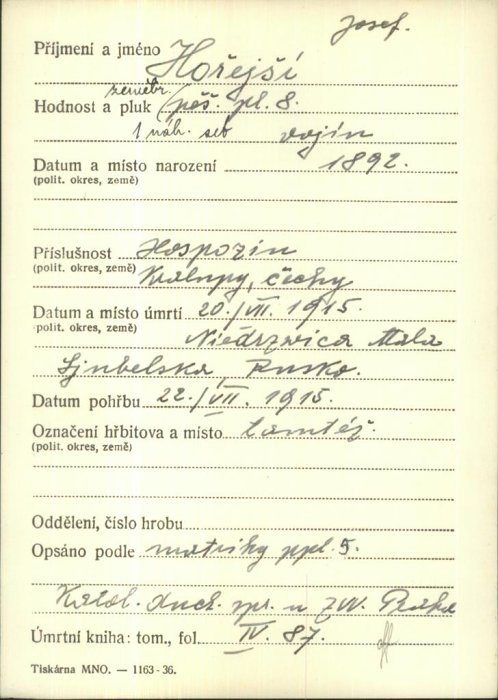 Josef.
Příjmení a jméno Hořejší
zeměbr.
Hodnost a pluk (pěš. pl. 8.
1 náh. set vojín
Datum a místo narození 1892.
(polit. okres, země)
Příslušnost Hospozín
(polit. okres, země) Kralupy, Čechy
Datum a místo úmrtí 20./VII. 1915.
polit. okres, země) Niedrzwica Mala
Ljubelska, Rusko.
Datum pohřbu 22./VII. 1915.
Označení hřbitova a místo tamtéž.
(polit. okres, země)
Oddělení, číslo hrobu
Opsáno podle matriky ppl. 5.
Katol. duch. spr. u ZVV. Praha
Úmrtní kniha: tom., fol. IV. 87.
Tiskárna MNO. — 1163-36.